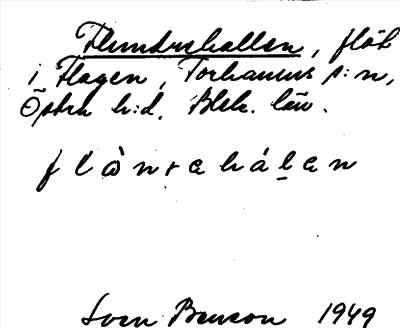 Flundrehallen, flåk
i Hagen, Torhamns s:n,
Östra h:d, Blek. län.
flònrahálan
Sven Benson 1949